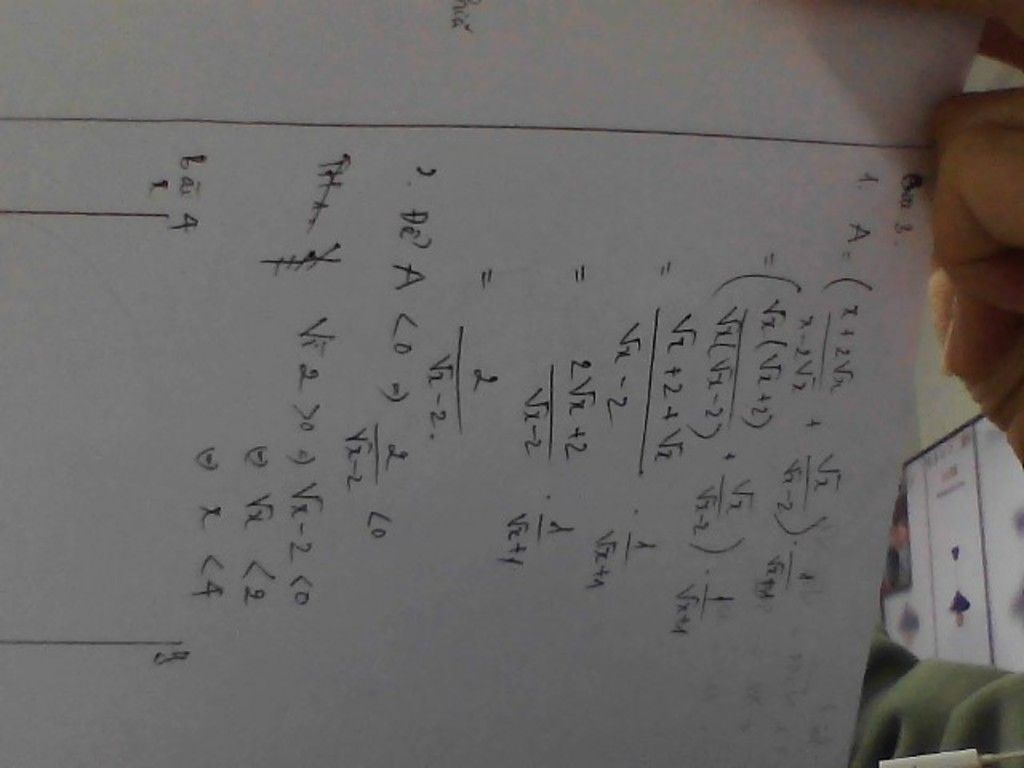 Bài 3.
1. A = ( x + 2√x / x - 2√x + √x / √x - 2 ) . 1 / √x + 1
= ( √x (√x + 2) / √x (√x - 2) + √x / √x - 2 ) . 1 / √x + 1
= √x + 2 + √x / √x - 2 . 1 / √x + 1
= 2√x + 2 / √x - 2 . 1 / √x + 1
= 2 / √x - 2 .
2. Để A < 0 => 2 / √x - 2 < 0
Vì 2 > 0 => √x - 2 < 0
<=> √x < 2
<=> x < 4
bài 4